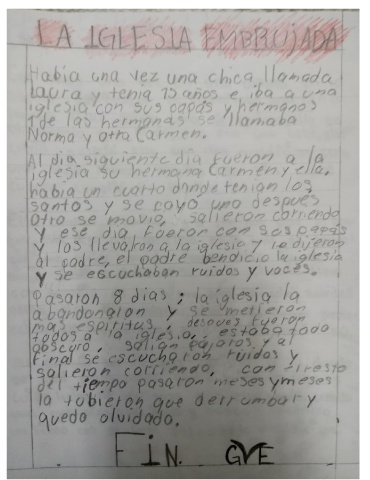 LA IGLESIA EMBRUJADA
Había una vez una chica llamada
Laura y tenia 15 años e iba a una
iglesia con sus papás y hermanos
1 de las hermanas se llamaba
Norma y otra Carmen.
Al dia siguiente dia fueron a la
iglesia su hermana Carmen y ella.
habia un cuarto donde tenian los
santos y se cayo uno despues
otro se movia, salieron corriendo
y ese dia fueron con sus papás
y los llevaron a la iglesia y le dijeron
al padre, el padre bendicio la iglesia
y se escuchaban ruidos y voces.
Pasaron 8 dias; la iglesia la
abandonaron y se metieron
mas espiritus, despues fueron
todos a la iglesia, estaba todo
obscuro, salian pajaros y al
final se escucharon ruidos y
salieron corriendo, con el resto
del tiempo pasaron meses y meses
la tubieron que derrumbar y
quedo olvidada.
FIN. GVE